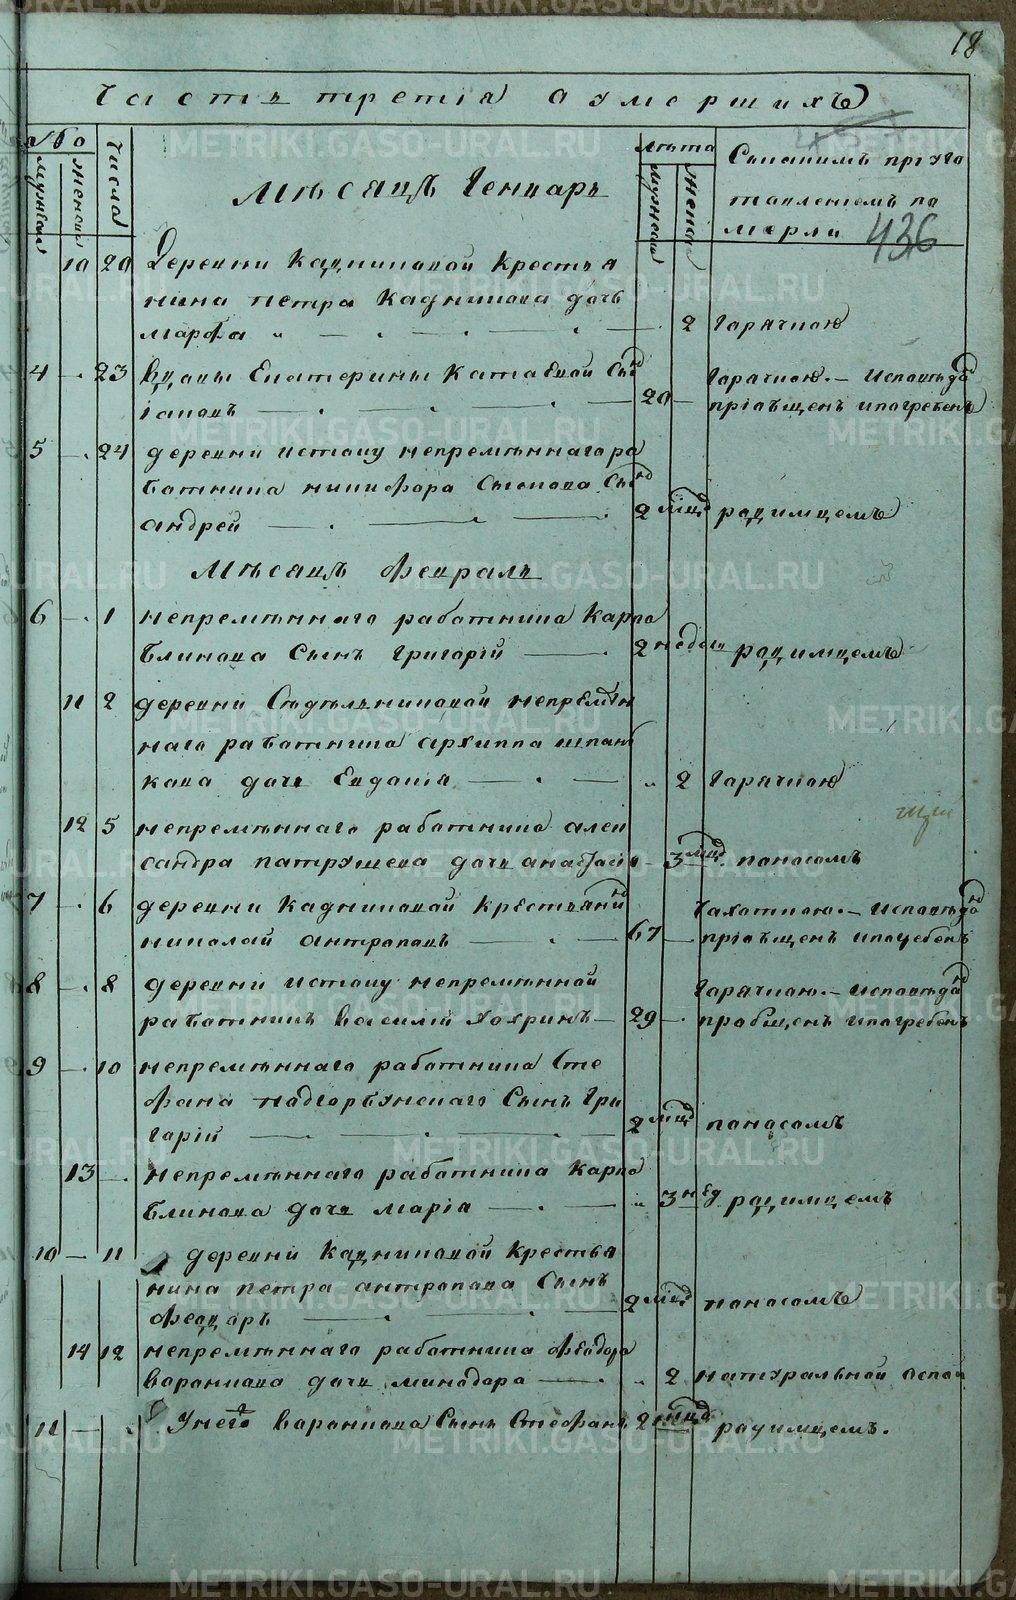 18
Часть третія о умершихъ
Число
мужеска
женска
лѣта
мужеска
женска
Съкакимъ пріуго
товленіемъ по
мерли
436
Мѣсяцъ Генварь
10 20 Деревни Кадниковой крестья
нина петра Кадникова дочь
марфа 2 горячкою
4 23 вдовы Екатерины Катаевой сынъ
20 горячкою. Исповѣдан
пріобщенъ ипогребенъ
5 24 деревни истоку непремѣннаго ра
ботника никифора Сынъ
андрей 2 мѣцъ родимцемъ
Мѣсяцъ февраль
6 1 непремѣннаго работника Карпа
блинова Сынъ григорій 2 недели родимцемъ
11 2 деревни Сѣдѣльниковой непремѣн
наго работника архиппа шпань
кова дочь Евдокія 2 горячкою
12 5 непремѣннаго работника алек
сандра патрушева дочь анастасія 3 мцъ поносомъ
7 6 деревни Кадниковой крестьянинъ
николай антроповъ 67 чахоткою. Исповѣдан
пріобщенъ ипогребенъ
8 8 деревни истоку непремѣнной
работникъ василій хохринъ 29 горячкою. Исповѣдан
пробщенъ ипогребенъ
9 10 непремѣннаго работника Сте
фана подгорбунскаго Сынъ Гри
горій 2 мцъ поносомъ
13 непремѣннаго работника карпа
блинова дочь марія 3 нед родимцемъ
10 11 деревни Кадниковой крестья
нина петра антропова Сынъ
феодоръ 2 мцъ поносомъ
14 12 непремѣннаго работника феодора
воронкова дочь минодора 2 натуральной оспой
11 Унего воронкова Сынъ Стефанъ 2 мцъ родимцемъ.
METRIKI.GASO-URAL.RU